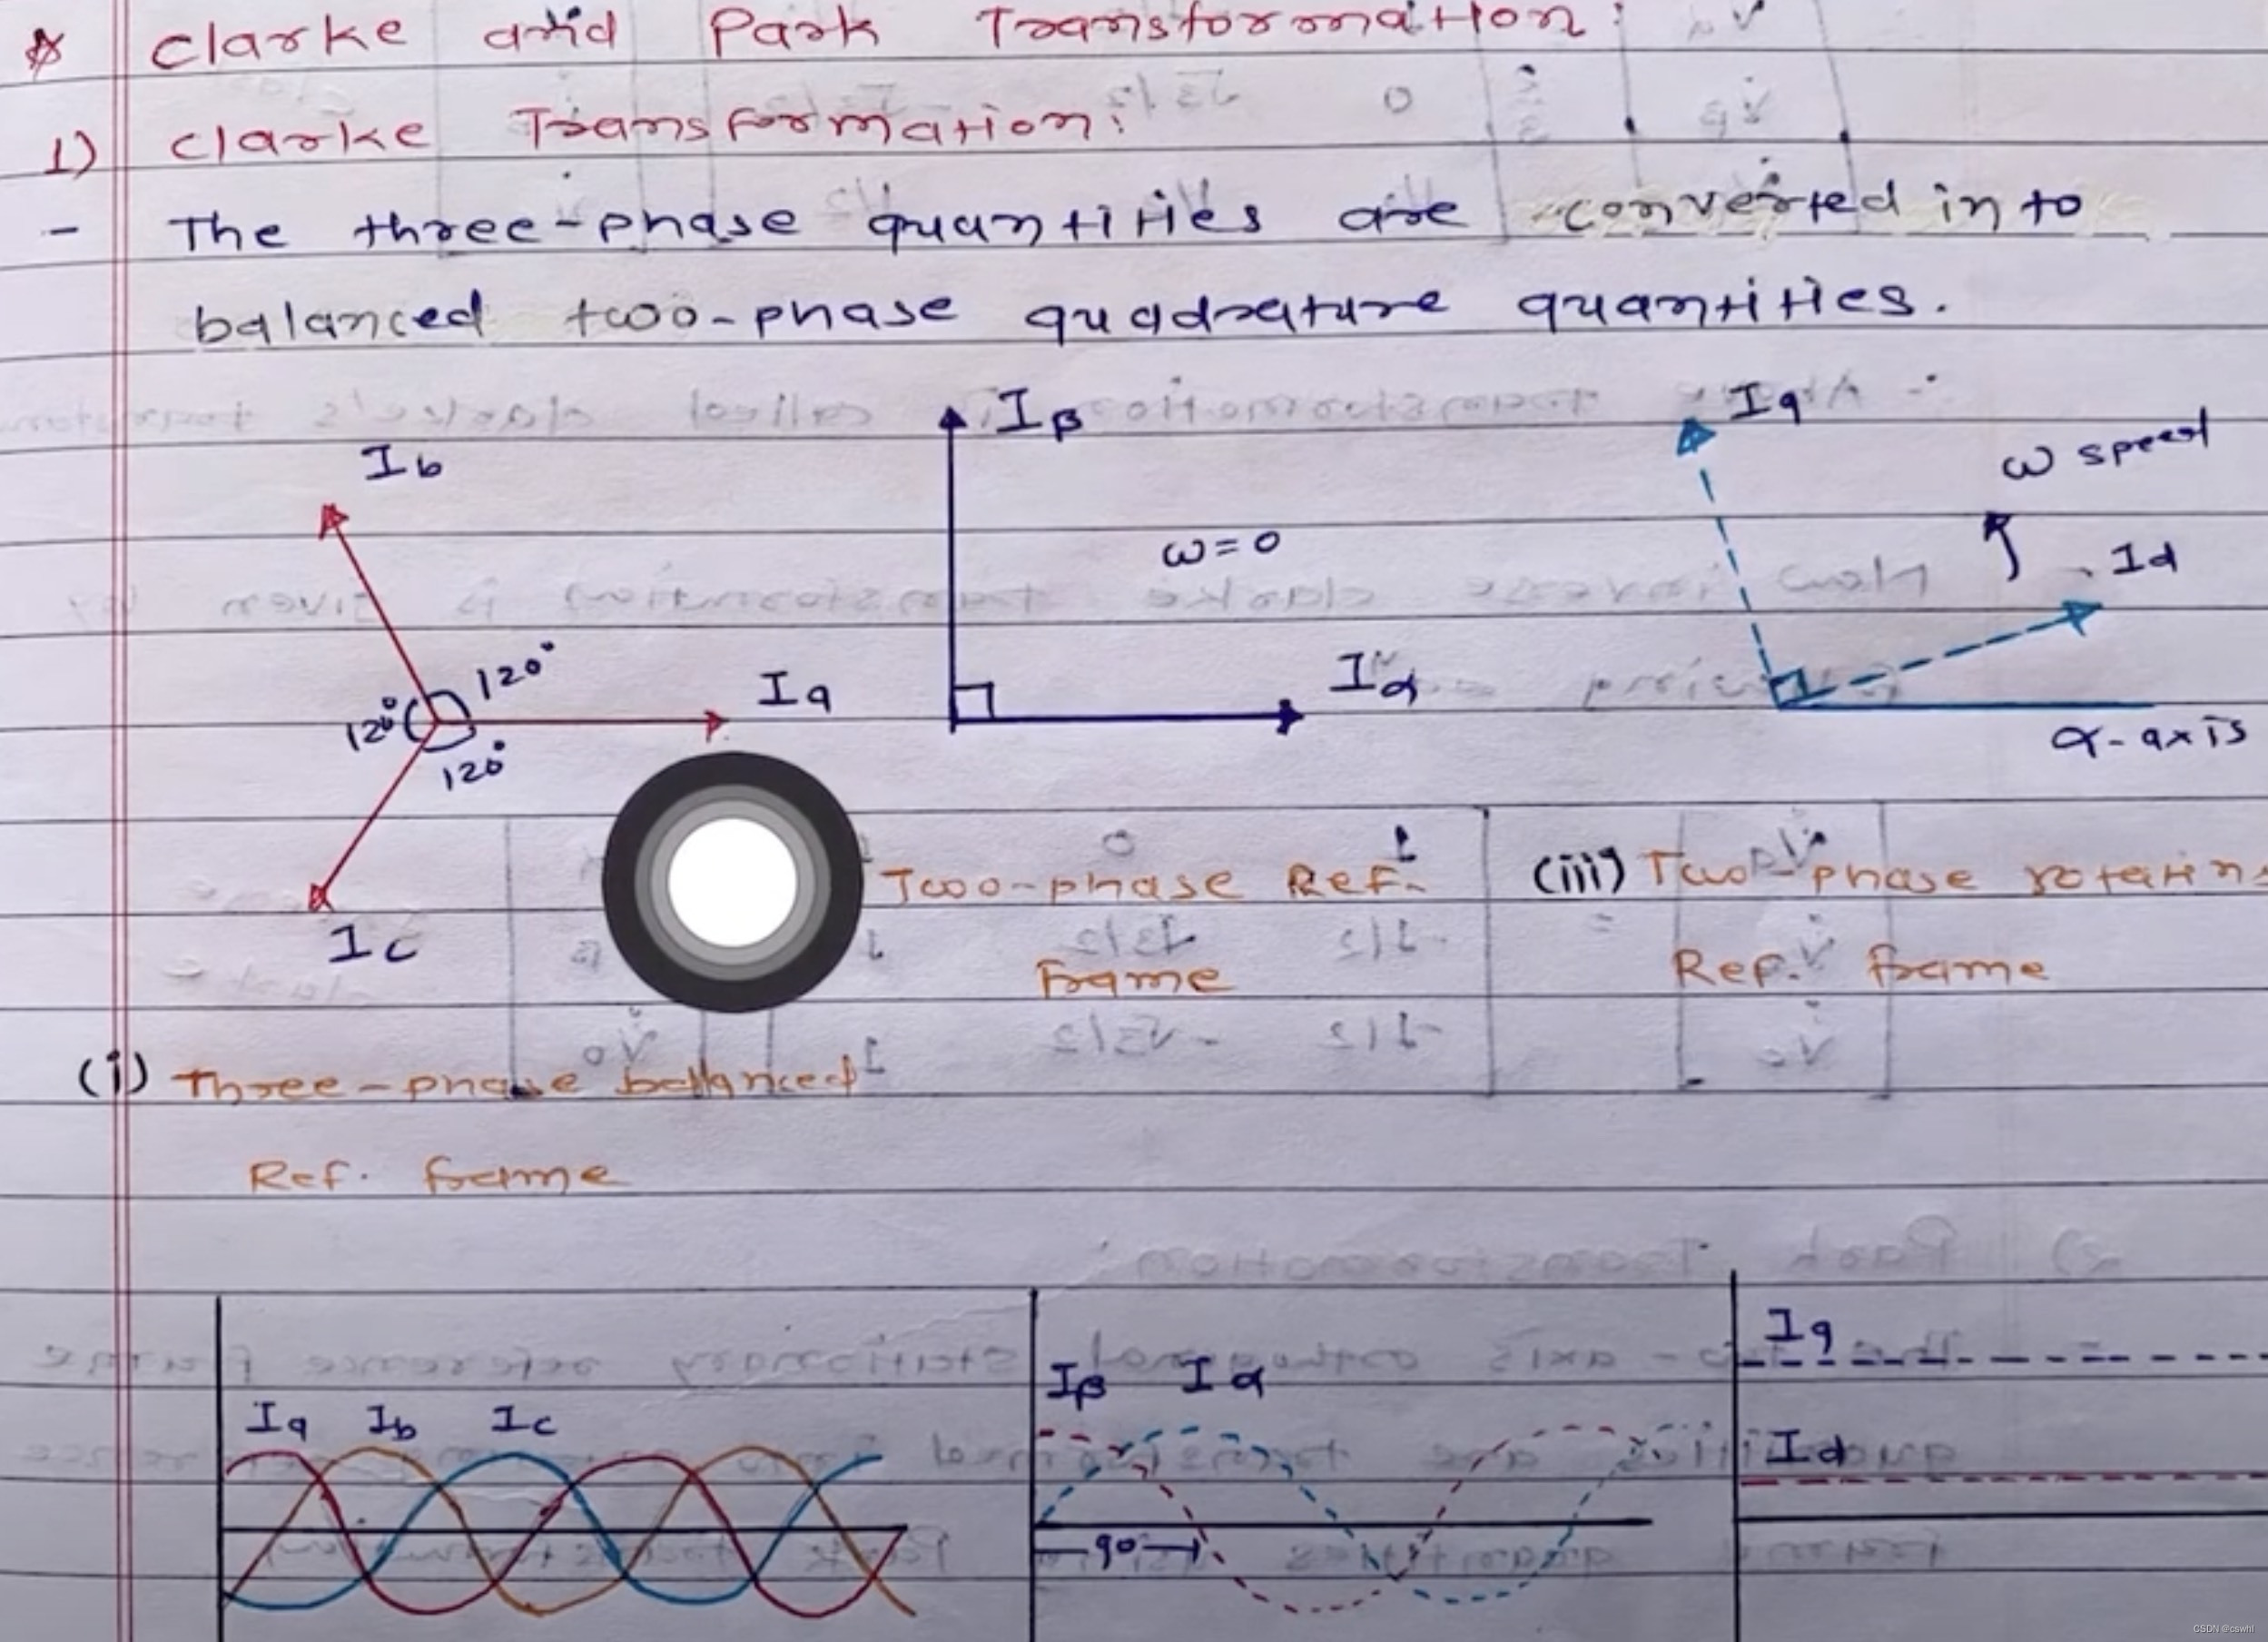 Clarke and Park Transformation:
1) Clarke Transformation:
- The three-phase quantities are converted in to
balanced two-phase quadrature quantities.
Ib
120°
120°
120°
Ia
Ic
Iβ
ω=0
Iα
Iq
ω speed
Id
α-axis
Two-phase Ref.
frame
(iii) Two-phase rotating
Ref. frame
(i) Three-phase balanced
Ref. frame
Ia Ib Ic
Iβ Iα
90
Iq
Id
CSDN @cswhl